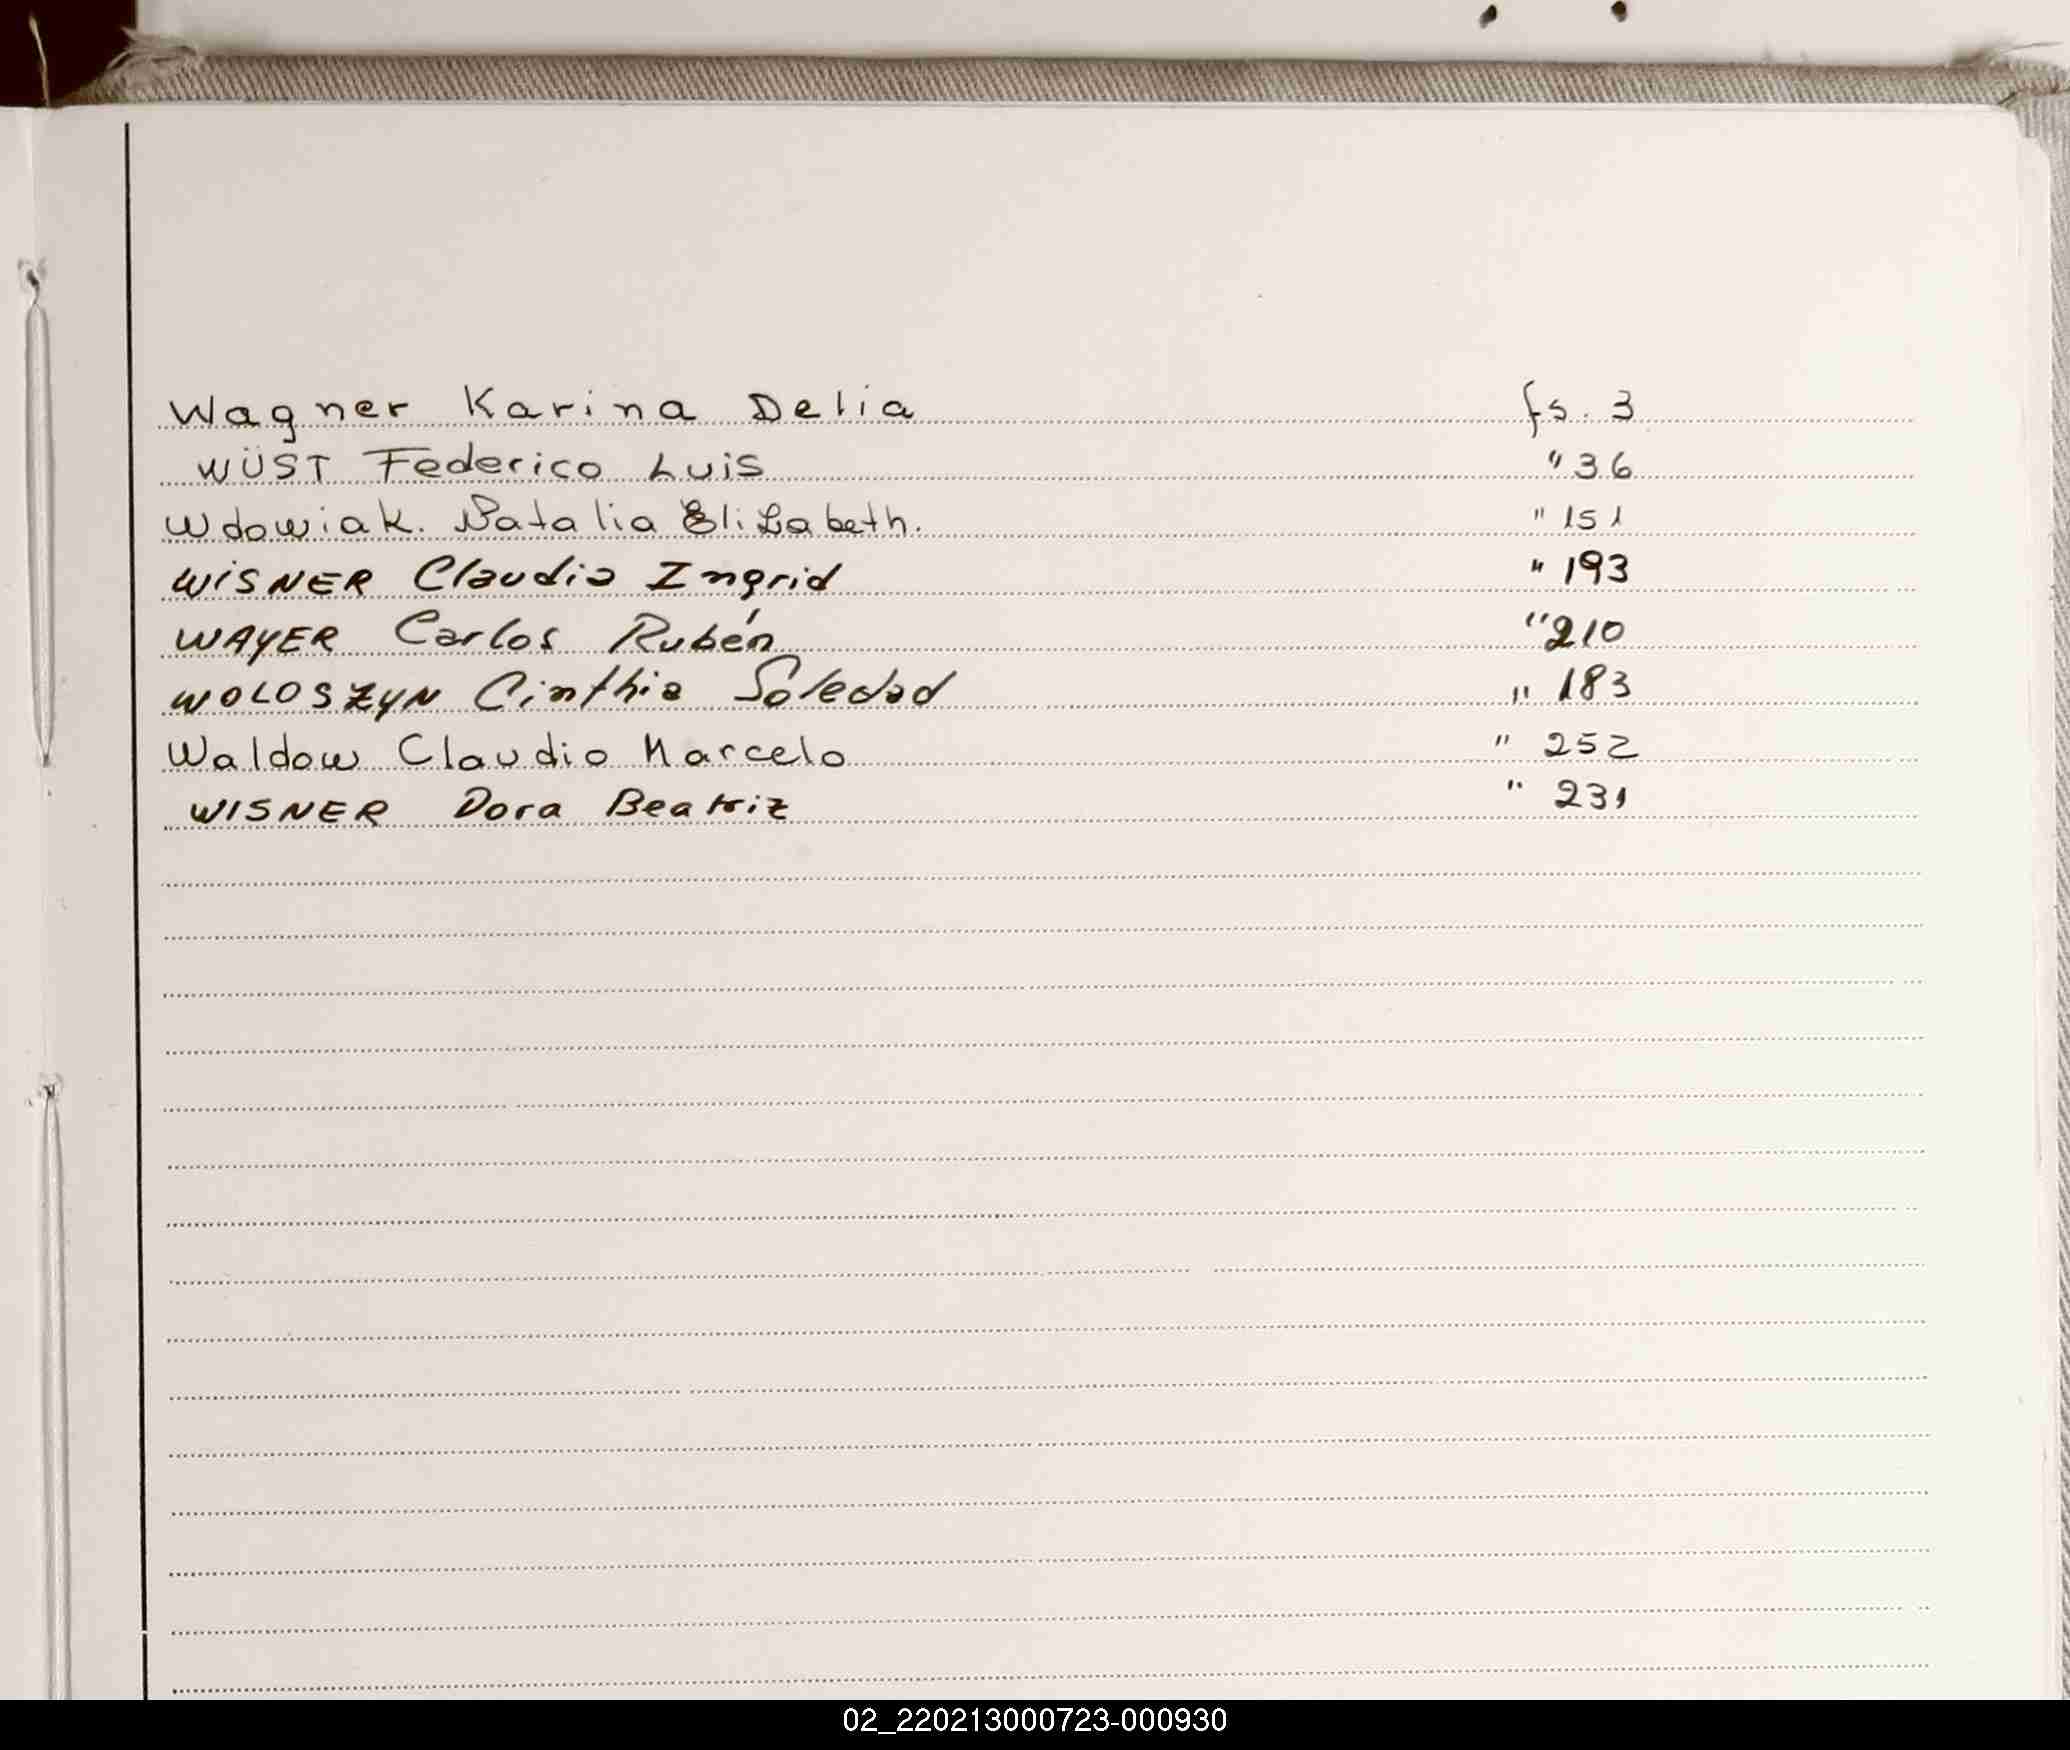 Wagner Karina Delia fs. 3
WÜST Federico Luis " 36
Wdowiak. Natalia Elizabeth. " 151
WISNER Claudia Ingrid " 193
WAYER Carlos Rubén " 210
WOLOSZYN Cinthia Soledad " 183
Waldow Claudio Marcelo " 252
WISNER Dora Beatriz " 231
02_220213000723-000930